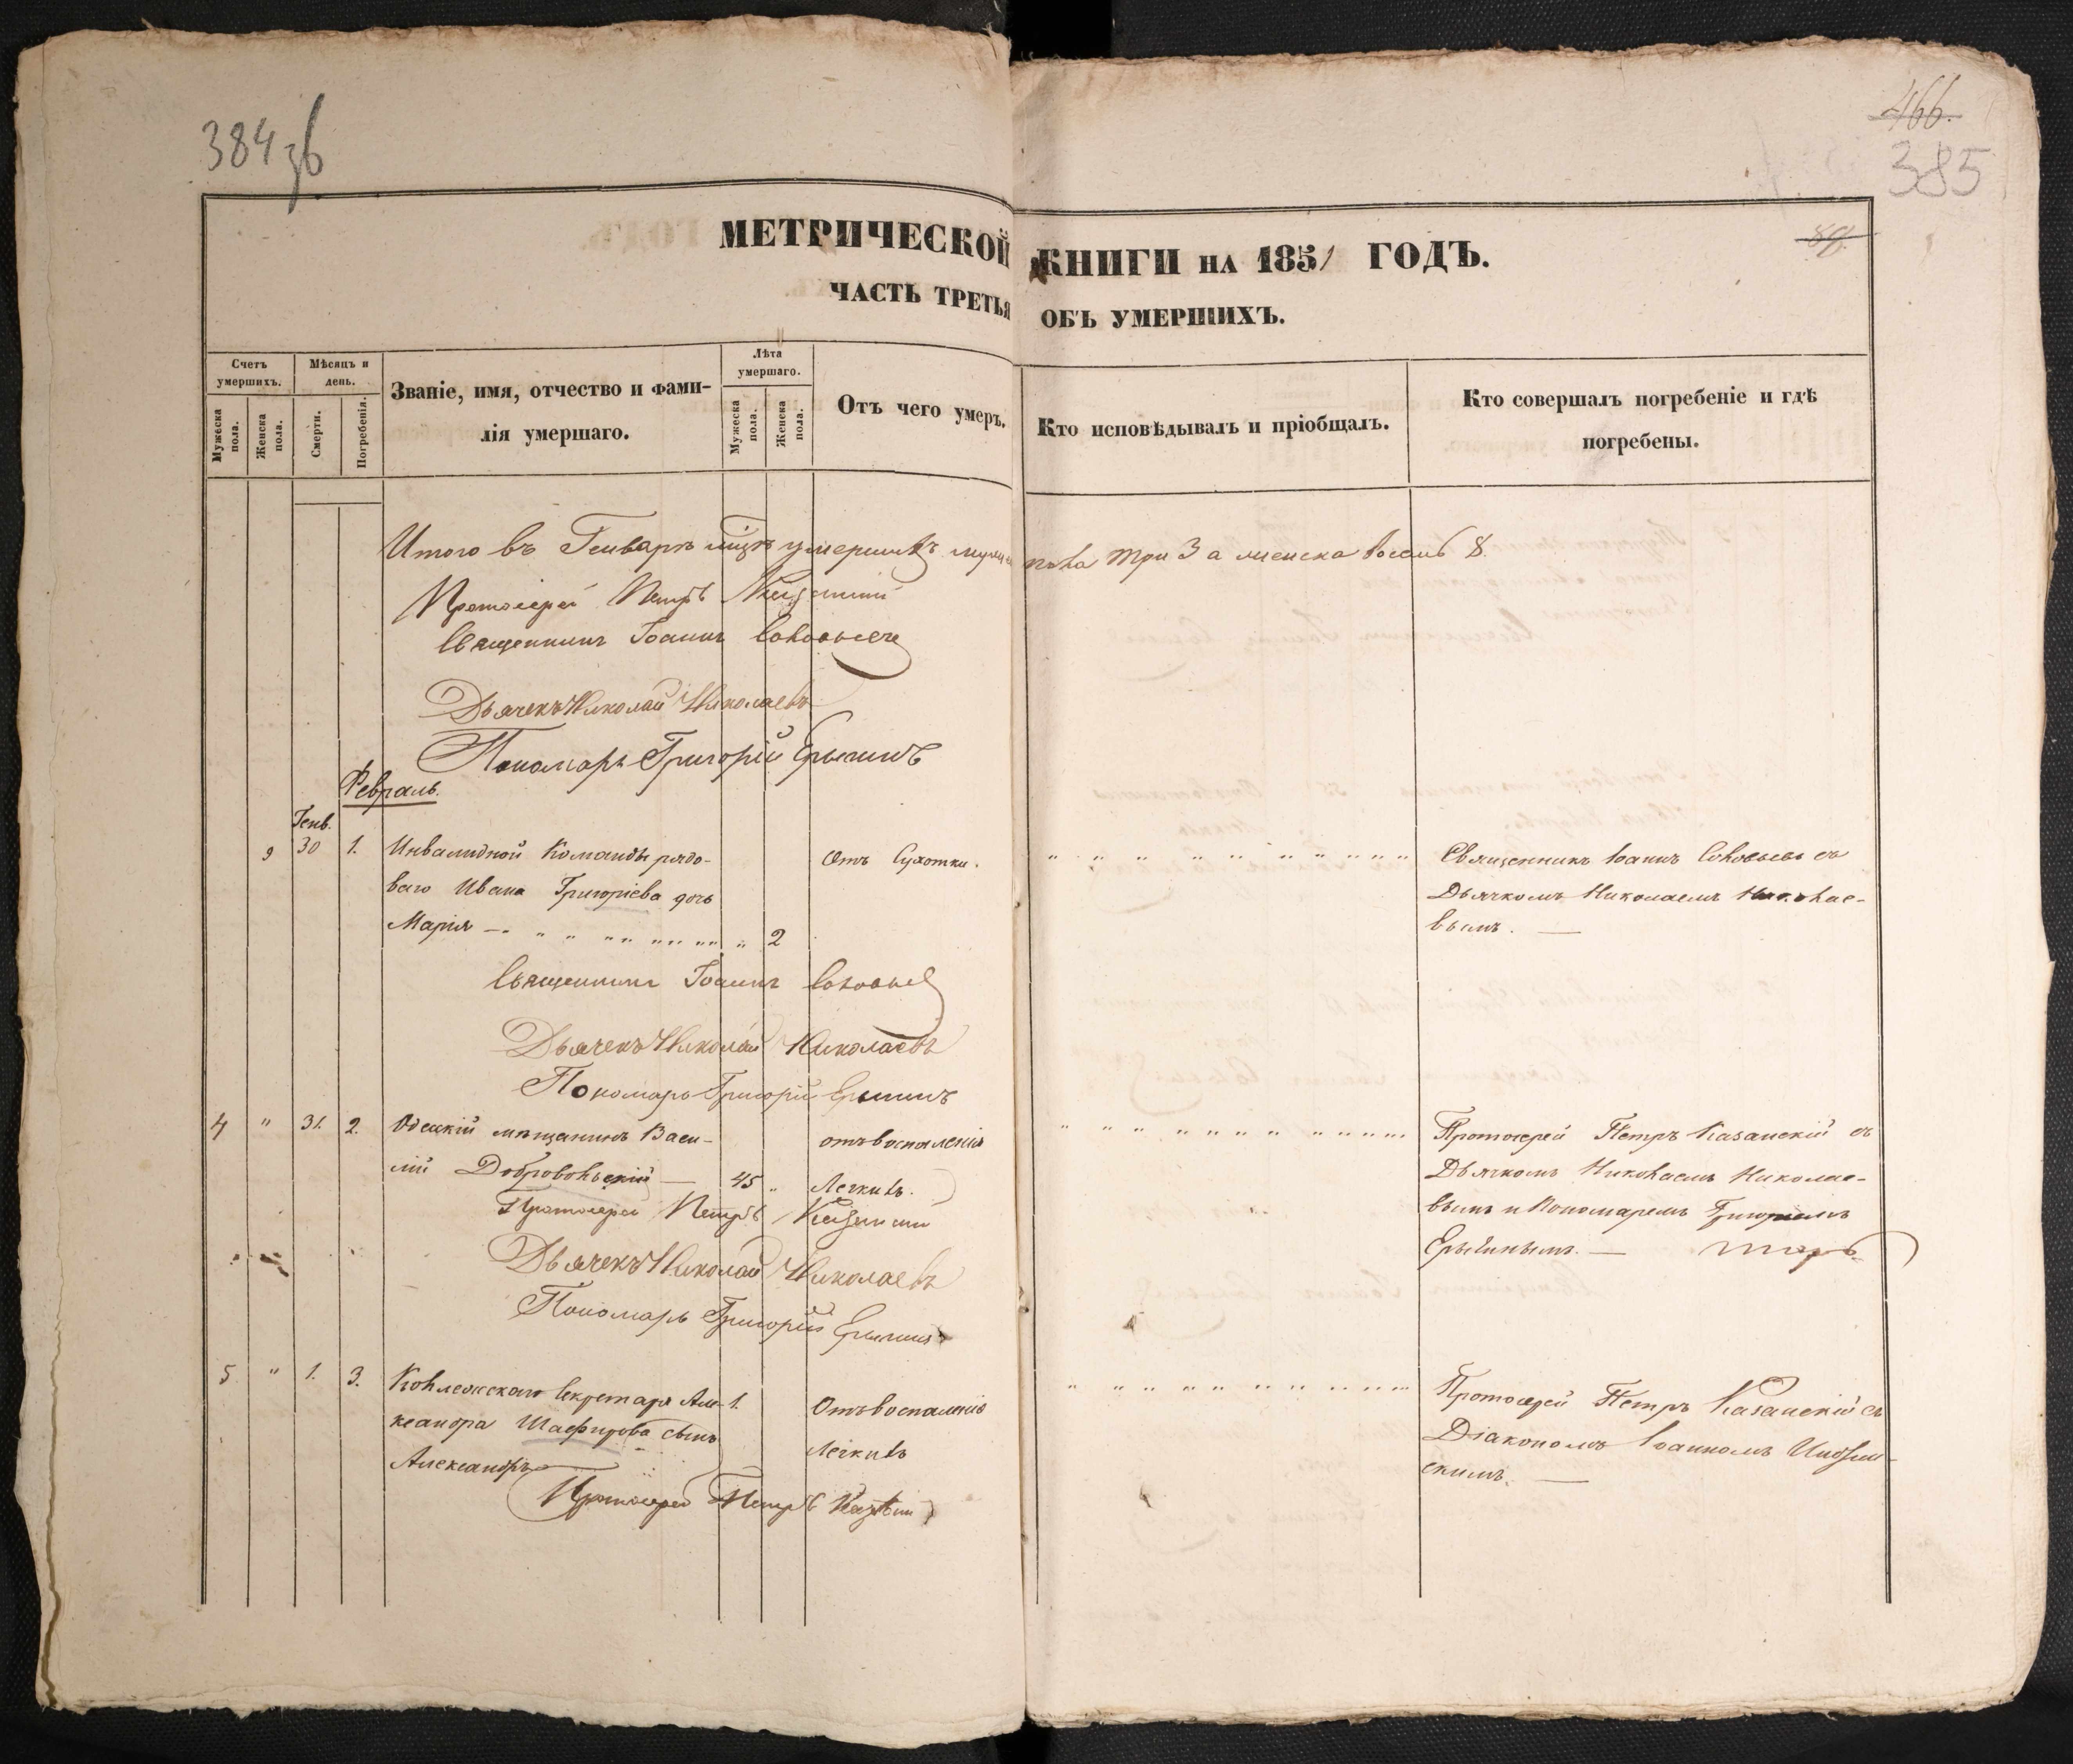 384 зв
466.
385
88.
МЕТРИЧЕСКОЙ КНИГИ НА 1851 ГОДЪ.
ЧАСТЬ ТРЕТЬЯ ОБЪ УМЕРШИХЪ.
Счетъ умершихъ.
Мѣсяцъ и день.
Званіе, имя, отчество и фами-
лія умершаго.
Лѣта умершаго.
Отъ чего умеръ.
Кто исповѣдывалъ и пріобщалъ.
Кто совершалъ погребеніе и гдѣ
погребены.
Мужеска пола.
Женска пола.
Смерти.
Погребенія.
Мужеска пола.
Женска пола.
Итого въ Генварѣ мцѣ умершихъ мужеска пола три 3 а женска восемь 8.
Протоіерей Петръ Казанскій
Священникъ Іоаннъ Соловьевъ
Дьячекъ Николай Николаевъ
Пономарь Григорій
Февраль.
Генв.
9 30 1. Инвалидной Команды рядо- отъ Сухотки. Священникъ Іоаннъ Соловьевъ съ
ваго Ивана Григоріева дочь Дьячкомъ Николаемъ Николае-
Марія 2 вымъ.
Священникъ Іоаннъ Соловьев
Дьячекъ Николай Николаевъ
Пономарь Григорій
4 " 31. 2. Одесскій мѣщанинъ Васи- отъ воспаленія Протоіерей Петръ Казанскій съ
лій Добровольскій 45 " Легкихъ. Дьячкомъ Николаемъ Николае-
Протоіерей Петръ Казанскій вымъ и Пономаремъ Григоріемъ
Дьячекъ Николай Николаевъ
Пономарь Григорій
5 " 1. 3. Коллежскаго Секретаря Але- 1. Отъ воспаленія Протоіерей Петръ Казанскій съ
ксандра Шафирова сынъ Легкихъ Діакономъ Іоанномъ
Александръ скимъ.
Протоіерей Петръ Казанскій